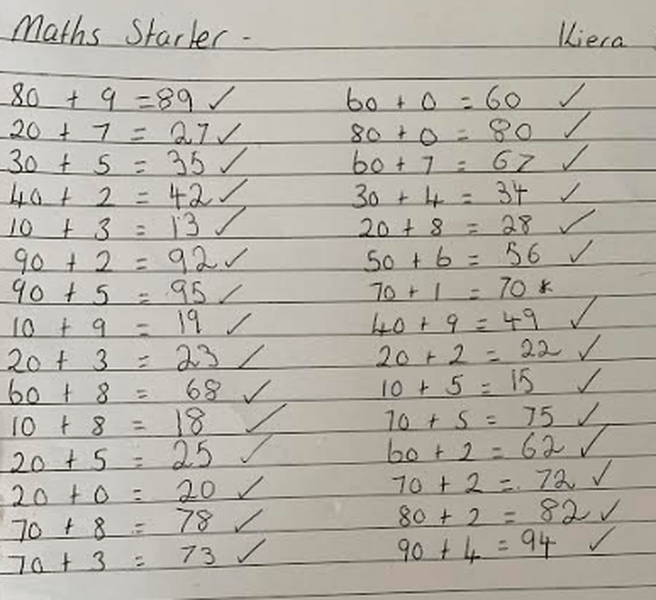 Maths Starter - Kiera
80 + 9 = 89 ✓ 60 + 0 = 60 ✓
20 + 7 = 27 ✓ 80 + 0 = 80 ✓
30 + 5 = 35 ✓ 60 + 7 = 67 ✓
40 + 2 = 42 ✓ 30 + 4 = 34 ✓
10 + 3 = 13 ✓ 20 + 8 = 28 ✓
90 + 2 = 92 ✓ 50 + 6 = 56 ✓
90 + 5 = 95 ✓ 70 + 1 = 70 *
10 + 9 = 19 ✓ 40 + 9 = 49 ✓
20 + 3 = 23 ✓ 20 + 2 = 22 ✓
60 + 8 = 68 ✓ 10 + 5 = 15 ✓
10 + 8 = 18 ✓ 70 + 5 = 75 ✓
20 + 5 = 25 ✓ 60 + 2 = 62 ✓
20 + 0 = 20 ✓ 70 + 2 = 72 ✓
70 + 8 = 78 ✓ 80 + 2 = 82 ✓
70 + 3 = 73 ✓ 90 + 4 = 94 ✓